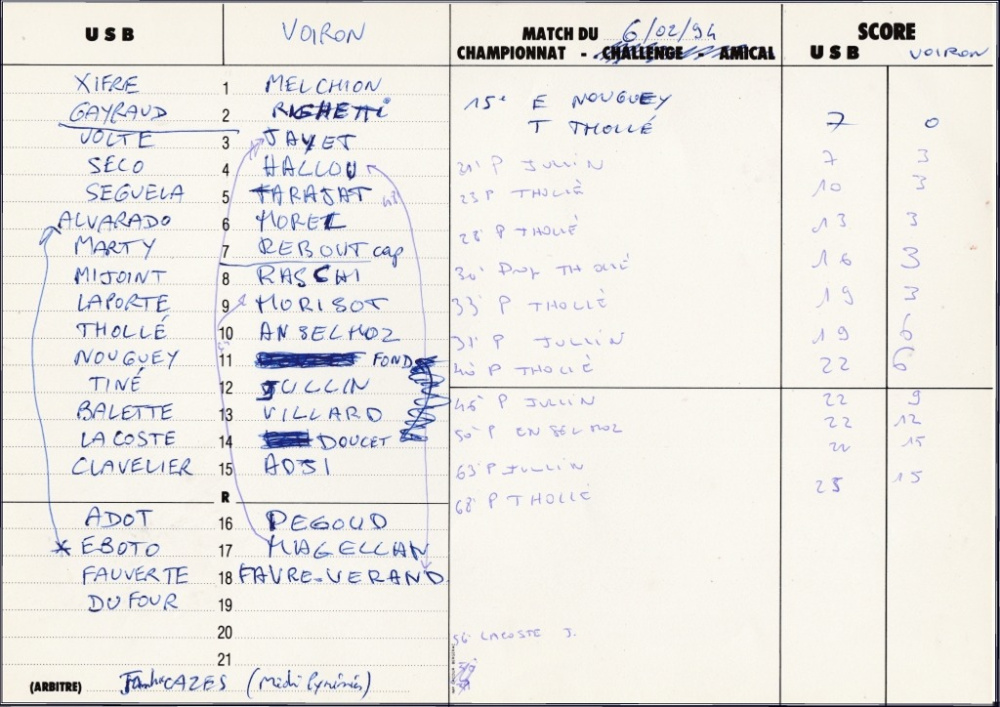 USB VOIRON MATCH DU 6/02/94 SCORE
CHAMPIONNAT - CHALLENGE - AMICAL USB VOIRON
XIFRE 1 MELCHION
GAYRAUD 2 RIGHETTI
VOLTE 3 JAYET
SECO 4 HALLOU
SEGUELA 5 TARAJAT
ALVARADO 6 MOREL
MARTY 7 REBOUT cap
MIJOINT 8 RASCHI
LAPORTE 9 MORISOT
THOLLÉ 10 ANSELMOZ
NOUGUEY 11 FOND
TINÉ 12 JULLIN
BALETTE 13 VILLARD
LACOSTE 14 DOUCET
CLAVELIER 15 ADJI
R
ADOT 16 PEGOUD
* EBOTO 17 MAGELLAN
FAUVERTE 18 FAVRE-VERAND
DUFOUR 19
20
21
(ARBITRE) CAZES (Midi Pyrénées)
15' E NOUGUEY
T THOLLÉ 7 0
21' P JULLIN 7 3
23 P THOLLÉ 10 3
28' P THOLLÉ 13 3
30' Drop THOLLÉ 16 3
33' P THOLLÉ 19 3
P JULLIN 19 6
40' P THOLLÉ 22 6
45' P JULLIN 22 9
50' P ENSELMOZ 22 12
63' P JULLIN 22 15
68' P THOLLÉ 25 15
56' LACOSTE J.